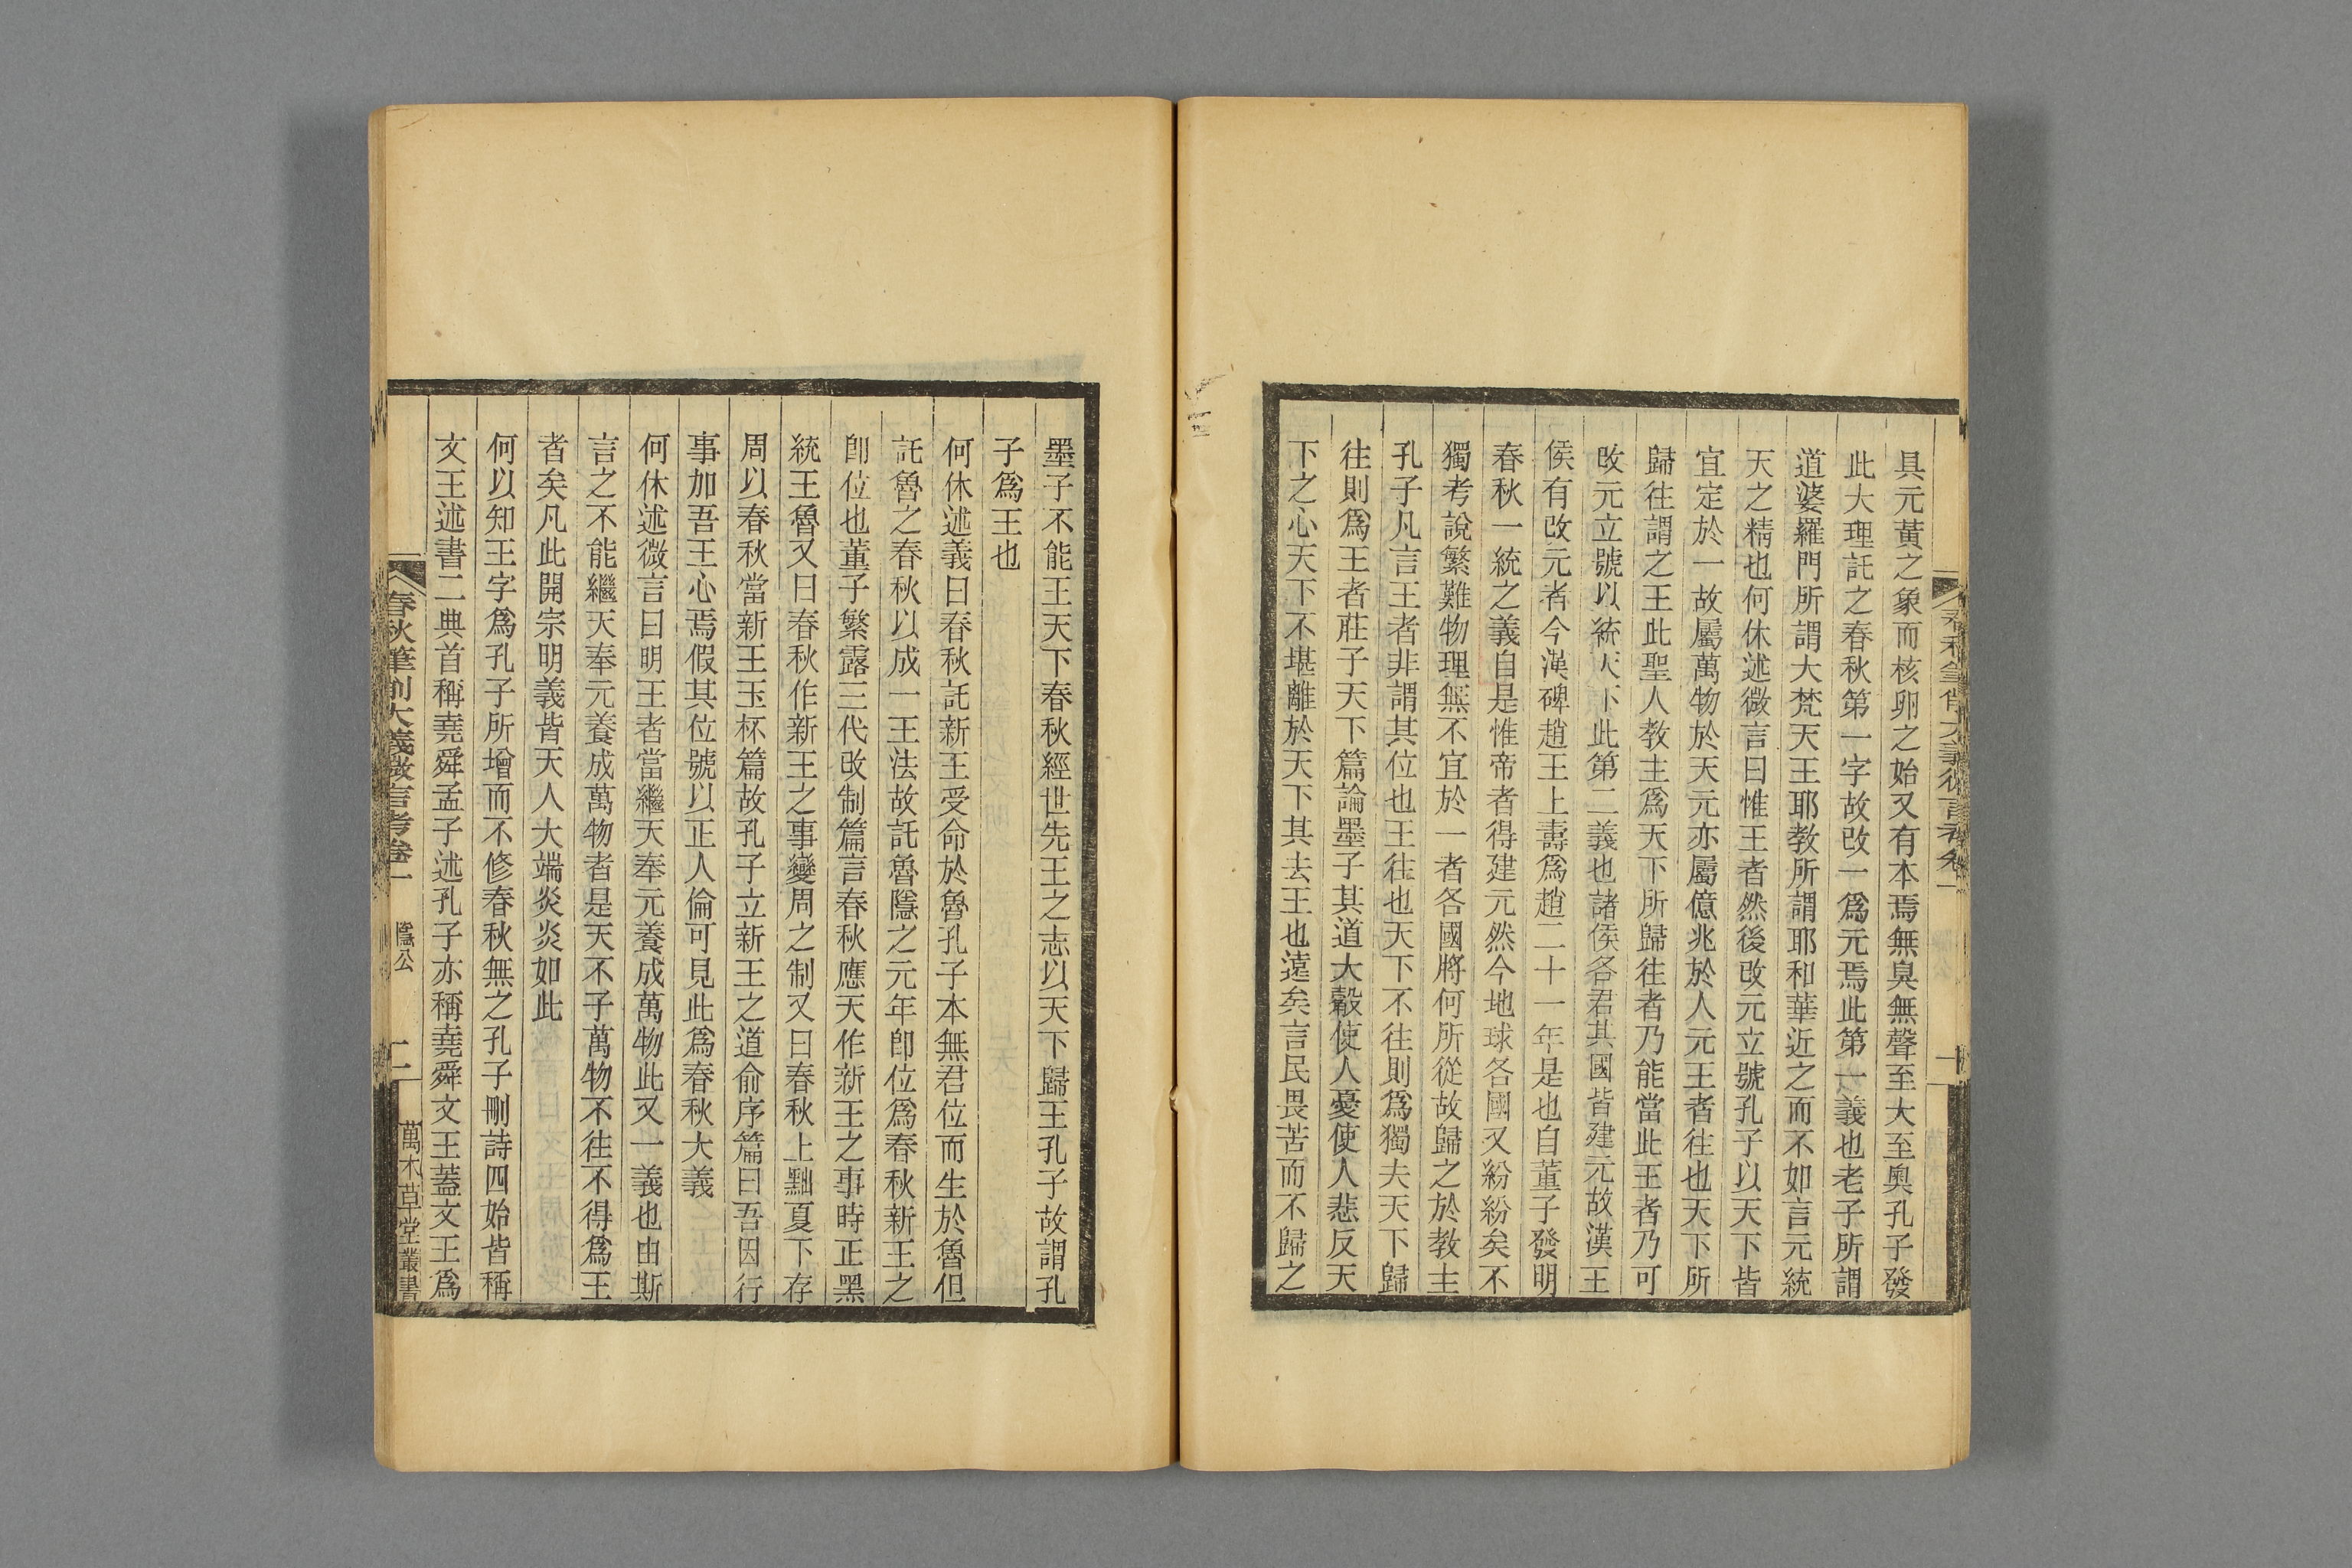 春秋筆削大義微言考卷一
具元黃之象而核卵之始又有本焉無臭無聲至大至奧孔子發
此大理託之春秋第一字故改一爲元焉此第一義也老子所謂
道婆羅門所謂大梵天王耶教所謂耶和華近之而不如言元統
天之精也何休述微言曰惟王者然後改元立號孔子以天下皆
宜定於一故屬萬物於天元亦屬億兆於人元王者往也天下所
歸往謂之王此聖人教主爲天下所歸往者乃能當此王者乃可
改元立號以統天下此第二義也諸侯各君其國皆建元故漢王
侯有改元者今漢碑趙王上壽爲趙二十一年是也自董子發明
春秋一統之義自是惟帝者得建元然今地球各國又紛紛矣不
獨考說繁難物理無不宜於一者各國將何所從故歸之於教主
孔子凡言王者非謂其位也王往也天下不往則爲獨夫天下歸
往則爲王者莊子天下篇論墨子其道大觳使人憂使人悲反天
下之心天下不堪離於天下其去王也遠矣言民畏苦而不歸之
墨子不能王天下春秋經世先王之志以天下歸王孔子故謂孔
子爲王也
何休述義曰春秋託新王受命於魯孔子本無君位而生於魯但
託魯之春秋以成一王法故託魯隱之元年卽位爲春秋新王之
卽位也董子繁露三代改制篇言春秋應天作新王之事時正黑
統王魯又曰春秋作新王之事變周之制又曰春秋上黜夏下存
周以春秋當新王玉杯篇故孔子立新王之道俞序篇曰吾因行
事加吾王心焉假其位號以正人倫可見此爲春秋大義
何休述微言曰明王者當繼天奉元養成萬物此又一義也由斯
言之不能繼天奉元養成萬物者是天不子萬物不往不得爲王
者矣凡此開宗明義皆天人大端炎炎如此
何以知王字爲孔子所增而不修春秋無之孔子刪詩四始皆稱
文王述書二典首稱堯舜孟子述孔子亦稱堯舜文王蓋文王爲
春秋筆削大義微言考卷一 隱公 二 萬木草堂叢書